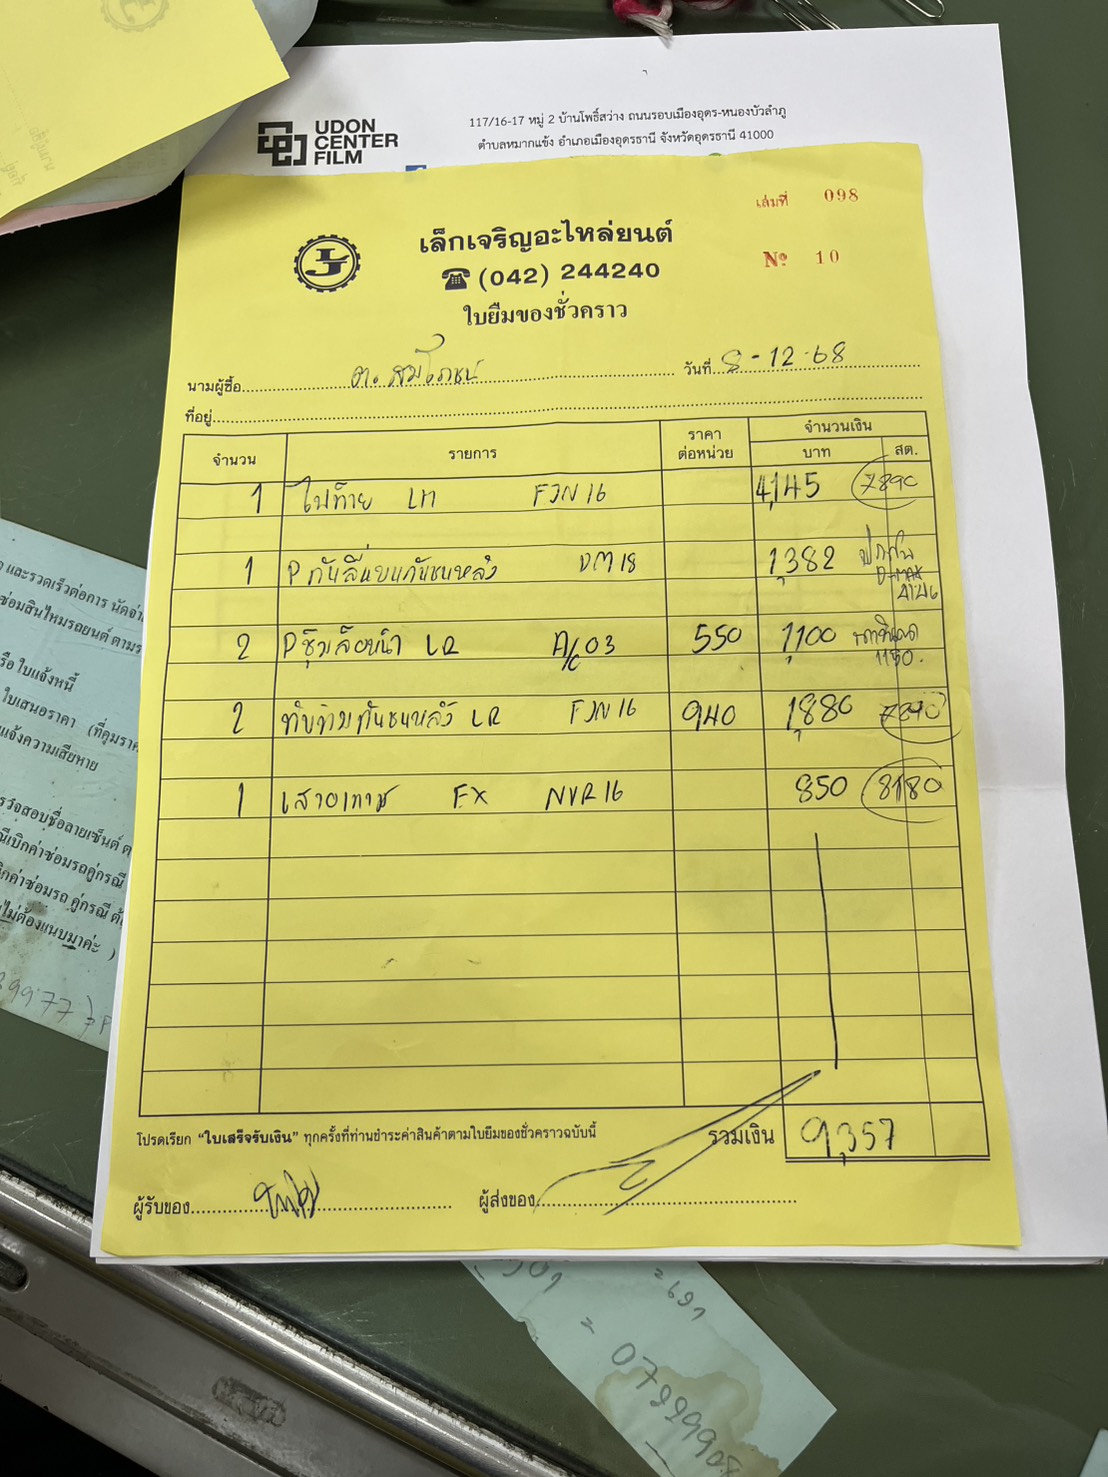 UDON
CENTER
FILM
117/16-17 หมู่ 2 บ้านโพธิ์สว่าง ถนนรอบเมืองอุดร-หนองบัวลำภู
ตำบลหมากแข้ง อำเภอเมืองอุดรธานี จังหวัดอุดรธานี 41000
เล่มที่ 098
เล็กเจริญอะไหล่ยนต์
Nº 10
(042) 244240
ใบยืมของชั่วคราว
นามผู้ซื้อ อ. สมโภชน์ วันที่ 8-12-68
ที่อยู่
จำนวน รายการ ราคาต่อหน่วย จำนวนเงิน บาท สต.
1 ไฟท้าย LH FJN16 4,145 7890
1 P กันลีบนกันชนหลัง DM18 1,382 D-MAX
2 Pซุ้มล้อหน้า LR A/C03 550 1,100 1150.
2 ทับทิมกันชนหลัง LR FJN16 940 1,880 7890
1 เสาอากาศ FX NVR16 850 8180
โปรดเรียก "ใบเสร็จรับเงิน" ทุกครั้งที่ท่านชำระค่าสินค้าตามใบยืมของชั่วคราวฉบับนี้ รวมเงิน 9,357
ผู้รับของ ผู้ส่งของ
และรวดเร็วต่อการ
ซ่อมสินไหมรถยนต์
รือ ใบแจ้งหนี้
ใบเสนอราคา
แจ้งความเสียหาย
ไม่ต้องแนบมาค่ะ )